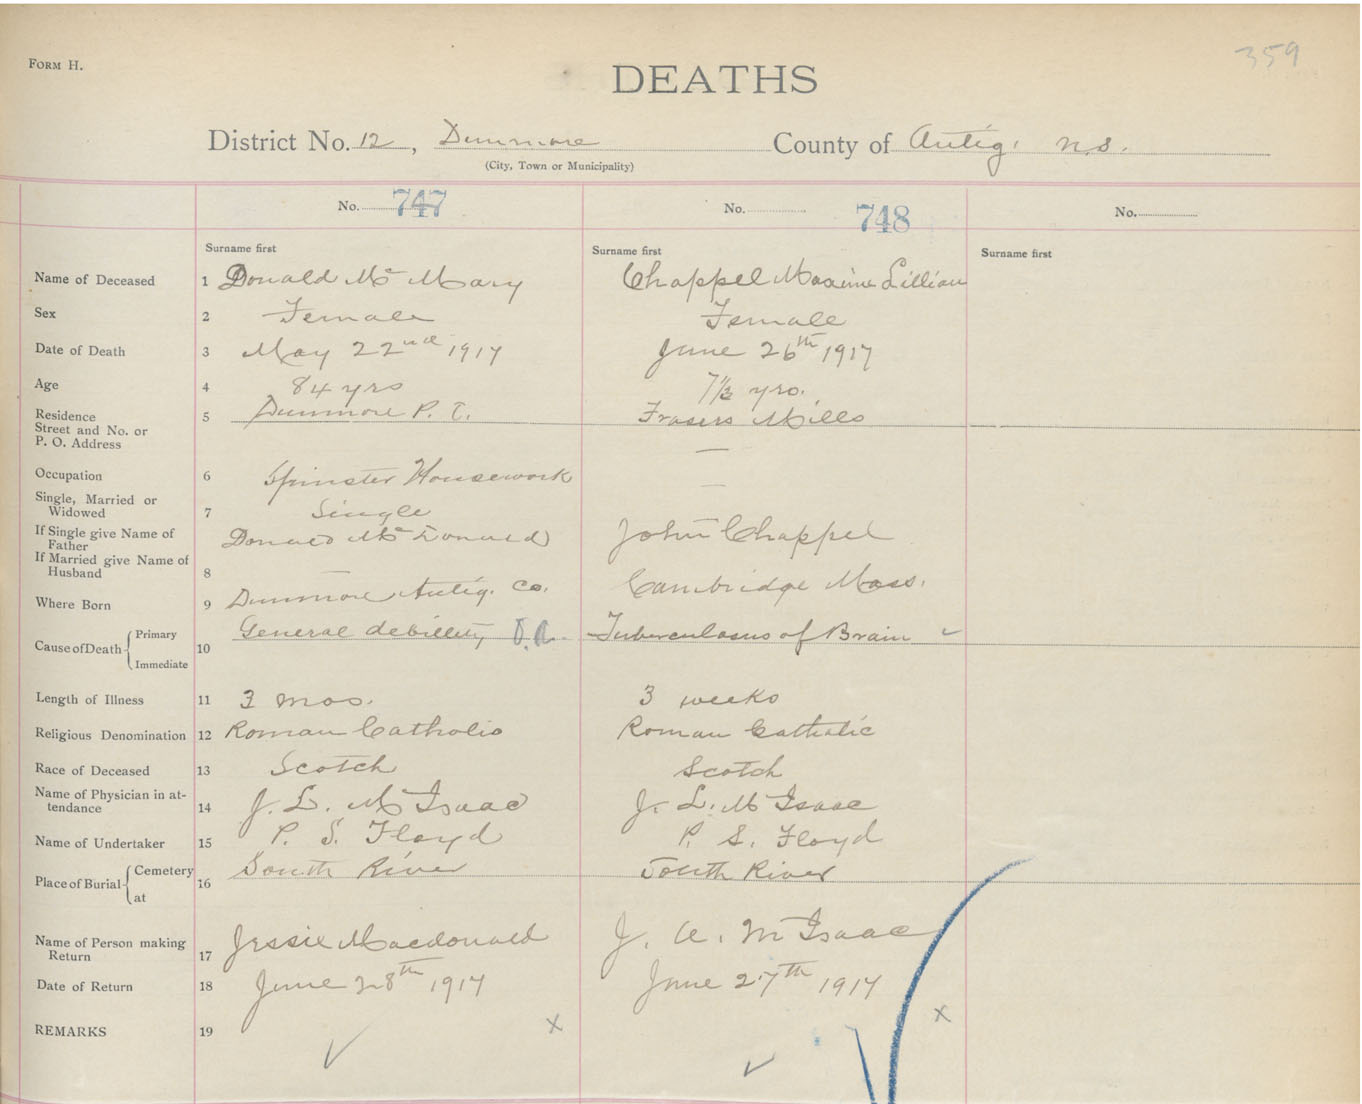 359
FORM H.
DEATHS
District No. 12, Dunmore County of Antig. N.S.
(City, Town or Municipality)
No. 747 No. 748 No.
Surname first Surname first Surname first
Name of Deceased 1 Donald Mc Mary Chappel Maxine Lillian
Sex 2 Female Female
Date of Death 3 May 22nd 1917 June 26th 1917
Age 4 84 yrs 7½ yrs.
Residence
Street and No. or
P. O. Address 5 Dunmore P. O. Frasers Mills
Occupation 6 Spinster Housework —
Single, Married or
Widowed 7 Single —
If Single give Name of
Father Donald Mc Donald John Chappel
If Married give Name of
Husband 8 —
Where Born 9 Dunmore Antig. Co. Cambridge Mass.
Cause of Death Primary General debility Tuberculosus of Brain
Immediate 10
Length of Illness 11 3 mos. 3 weeks
Religious Denomination 12 Roman Catholic Roman Catholic
Race of Deceased 13 Scotch Scotch
Name of Physician in at-
tendance 14 J. L. Mc Isaac J. L. Mc Isaac
Name of Undertaker 15 P. S. Floyd P. S. Floyd
Place of Burial Cemetery South River South River
at 16
Name of Person making
Return 17 Jessie Macdonald J. A. Mc Isaac
Date of Return 18 June 28th 1917 June 27th 1917
REMARKS 19 x x